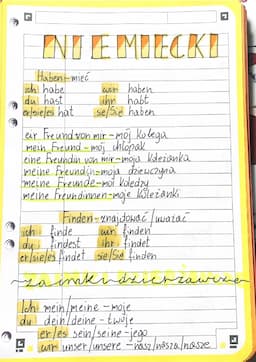 NIEMIECKI
Haben-mieć
ich habe wir haben
du hast ihr habt
er/sie/es hat sie/Sie haben
ein Freund von mir-mój kolega
mein Freund-mój chłopak
eine Freundin von mir-moja koleżanka
meine Freundin-moja dziewczyna
meine Freunde-moi koledzy
meine Freundinnen-moje koleżanki
Finden-znajdować/uważać
ich finde wir finden
du findest ihr findet
er/sie/es findet sie/Sie finden
zaimki dzierżawcze
ich mein/meine-moje
du dein/deine-twoje
er/es sein/seine-jego
wir unser/unsere-nasz/nasza/nasze